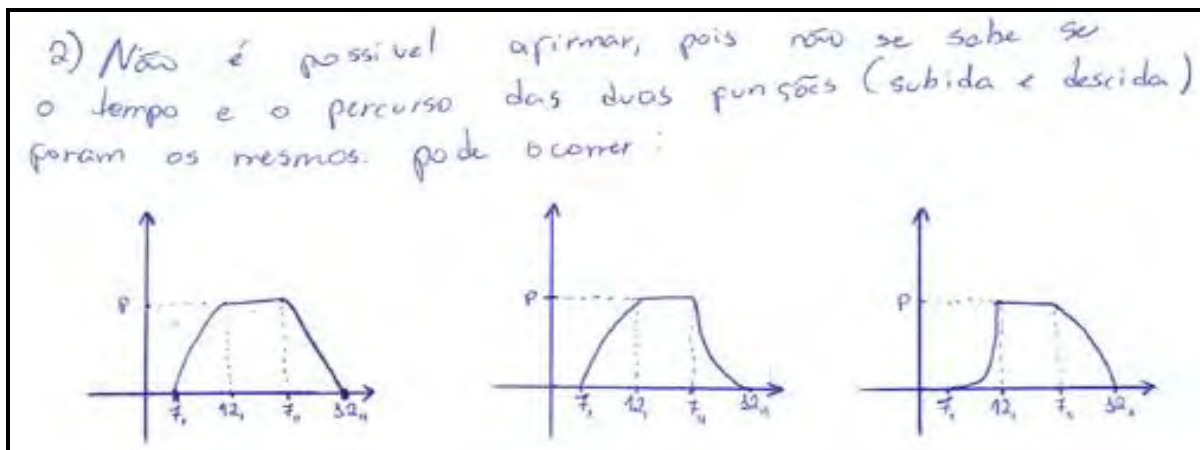 2) Não é possivel afirmar, pois não se sabe se
o tempo e o percurso das duas funções (subida e descida)
foram os mesmos. pode ocorrer:
P P P
7, 12, 7,, 12,, 7, 12, 7,, 12,, 7, 12, 7,, 12,,